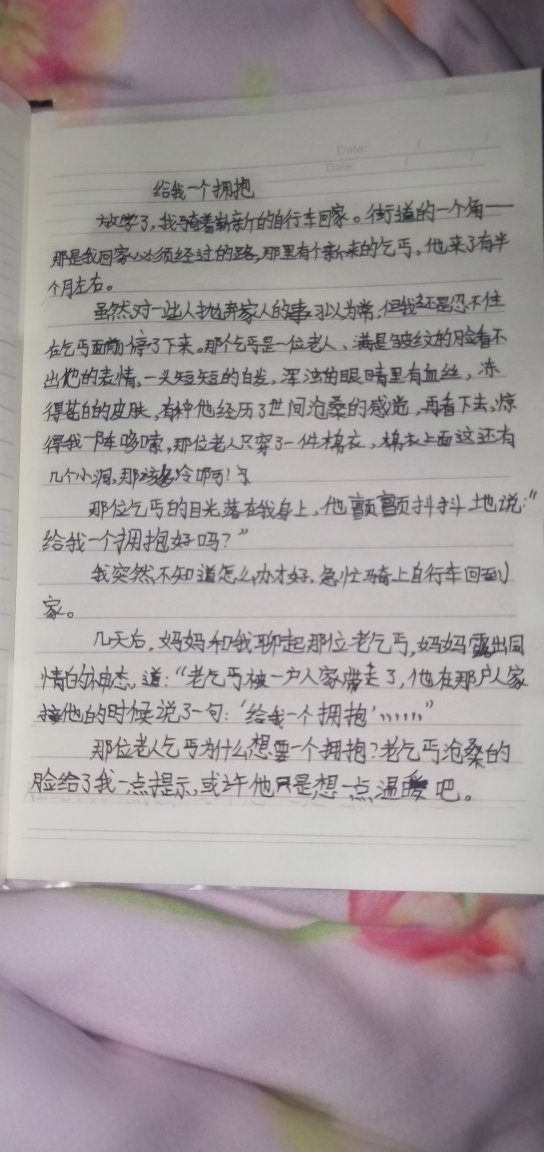 Date: / /
Date: / /
给我一个拥抱
放学了,我骑着崭新的自行车回家。街道的一个角——
那是我回家必须经过的路,那里有个新来的乞丐。他来了有半
个月左右。
虽然对一些人抛弃家人的事习以为常,但我还是忍不住
在乞丐面前停了下来。那个乞丐是一位老人、满是皱纹的脸看不
出他的表情,一头短短的白发,浑浊的眼睛里有血丝,冻
得苍白的皮肤,有种他经历了世间沧桑的感觉,再看下去,惊
得我一阵哆嗦,那位老人只穿了一件棉衣,棉衣上面这还有
几个小洞,那该多冷啊!
那位乞丐的目光落在我身上,他颤颤抖抖地说:“
给我一个拥抱好吗?”
我突然不知道怎么办才好,急忙骑上自行车回到
家。
几天后,妈妈和我聊起那位老乞丐,妈妈露出同
情的神态,道:“老乞丐被一户人家带走了,他在那户人家
接他的时候说了一句:‘给我一个拥抱’,,,,,,”
那位老人乞丐为什么想要一个拥抱?老乞丐沧桑的
脸给了我一点提示,或许他只是想一点温暖吧。